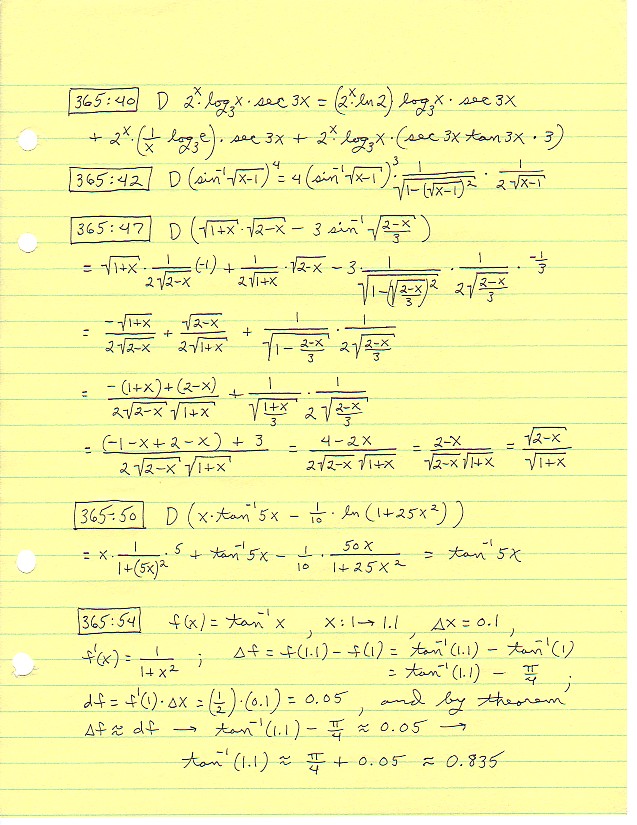 365:40 D 2^x · log₃x · sec 3x = (2^x · ln 2) log₃x · sec 3x
+ 2^x · (1/x log₃e) · sec 3x + 2^x · log₃x · (sec 3x tan 3x · 3)
365:42 D (sin⁻¹ √(x-1))⁴ = 4 (sin⁻¹ √(x-1))³ · 1/√(1-(√(x-1))²) · 1/(2√(x-1))
365:47 D (√(1+x) · √(2-x) - 3 sin⁻¹ √((2-x)/3))
= √(1+x) · 1/(2√(2-x)) (-1) + 1/(2√(1+x)) · √(2-x) - 3 · 1/√(1-(√((2-x)/3))²) · 1/(2√((2-x)/3)) · -1/3
= -√(1+x)/(2√(2-x)) + √(2-x)/(2√(1+x)) + 1/√(1-(2-x)/3) · 1/(2√((2-x)/3))
= (-(1+x)+(2-x))/(2√(2-x) √(1+x)) + 1/√((1+x)/3) · 1/(2√((2-x)/3))
= ((-1-x+2-x) + 3)/(2√(2-x) √(1+x)) = (4-2x)/(2√(2-x) √(1+x)) = (2-x)/(√(2-x) √(1+x)) = √(2-x)/√(1+x)
365:50 D (x · tan⁻¹ 5x - 1/10 · ln (1+25x²))
= x · 1/(1+(5x)²) · 5 + tan⁻¹ 5x - 1/10 · 50x/(1+25x²) = tan⁻¹ 5x
365:54 f(x) = tan⁻¹ x , x: 1→1.1 , Δx = 0.1 ,
f'(x) = 1/(1+x²) ; Δf = f(1.1) - f(1) = tan⁻¹(1.1) - tan⁻¹(1)
= tan⁻¹(1.1) - π/4 ;
df = f'(1) · Δx = (1/2) · (0.1) = 0.05 , and by theorem
Δf ≈ df → tan⁻¹(1.1) - π/4 ≈ 0.05 →
tan⁻¹(1.1) ≈ π/4 + 0.05 ≈ 0.835